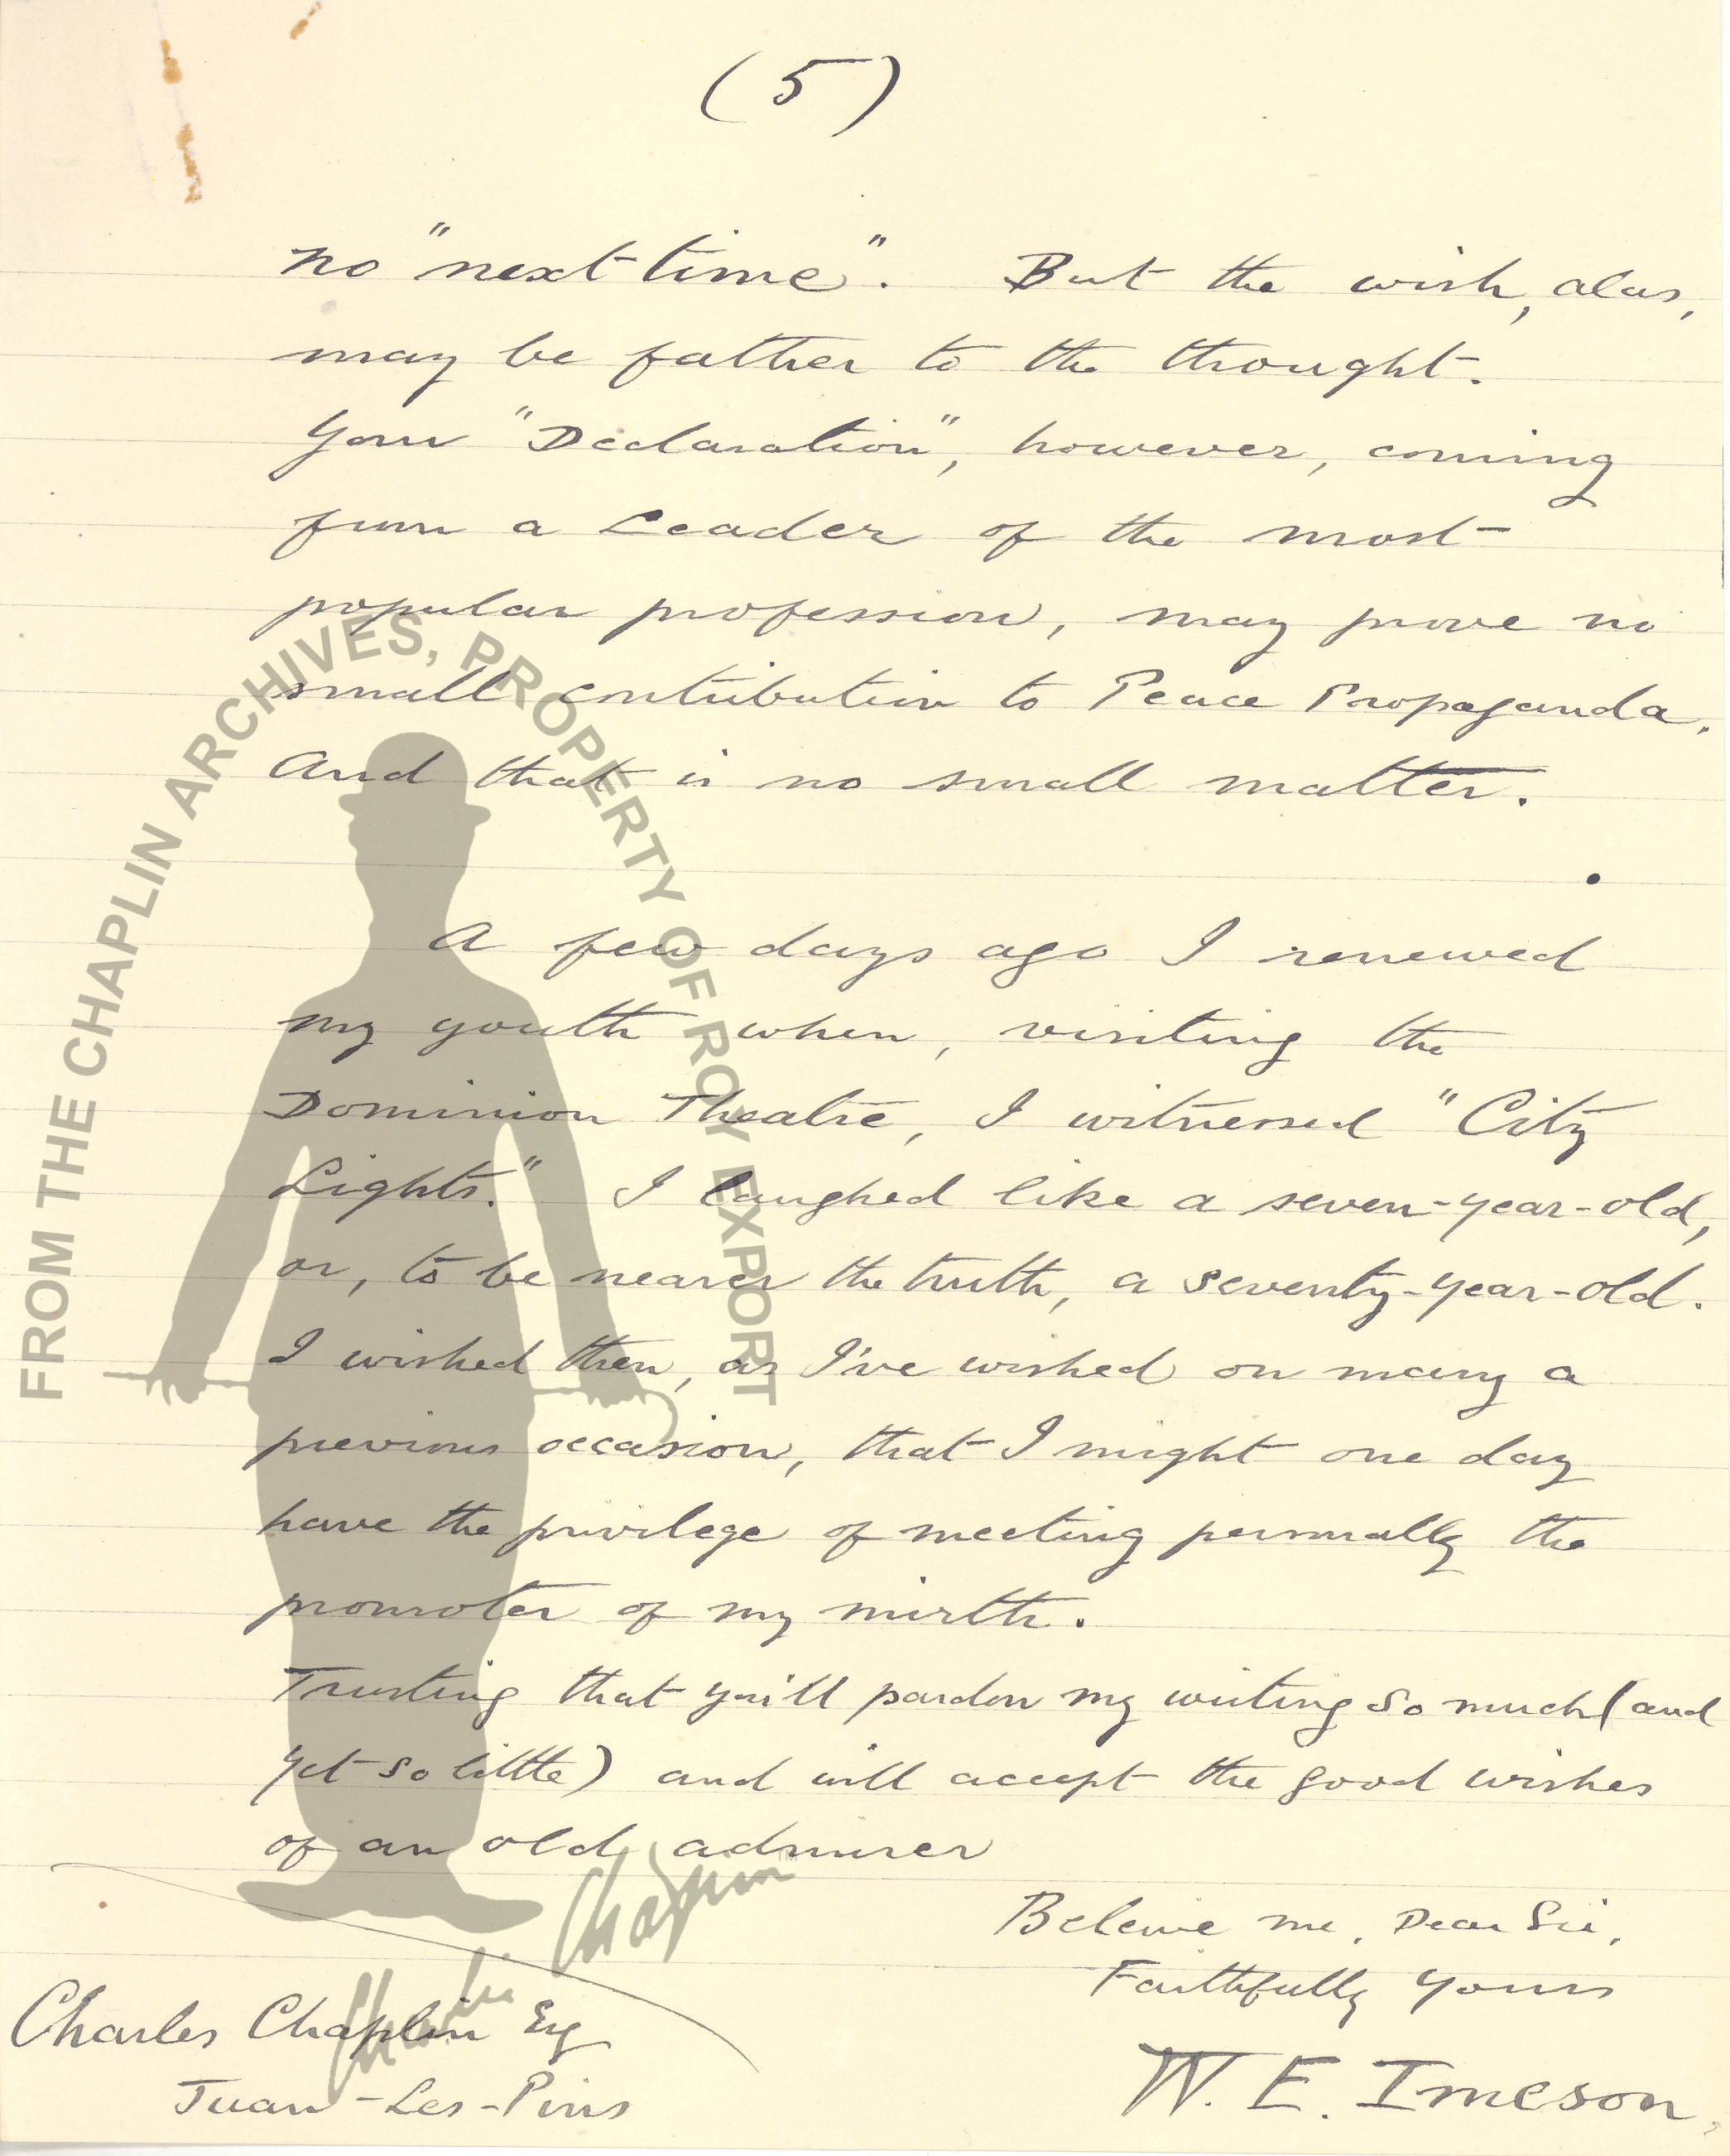 (5)
no "next time". But the wish, alas,
may be father to the thought.
Your "Declaration", however, coming
from a Leader of the most
popular profession, may prove no
small contribution to Peace Propaganda.
And that is no small matter.
A few days ago I renewed
my youth when, visiting the
Dominion Theatre, I witnessed "City
Lights." I laughed like a seven-year-old,
or, to be nearer the truth, a seventy-year-old.
I wished then, as I've wished on many a
previous occasion, that I might one day
have the privilege of meeting personally the
promoter of my mirth.
Trusting that you'll pardon my writing so much (and
yet so little) and will accept the good wishes
of an old admirer
Beleive me, Dear Sir,
Faithfully Yours
W. E. Imeson.
Charles Chaplin Esq
Juan-Les-Pins
FROM THE CHAPLIN ARCHIVES, PROPERTY OF ROY EXPORT
Charlie Chaplin TM